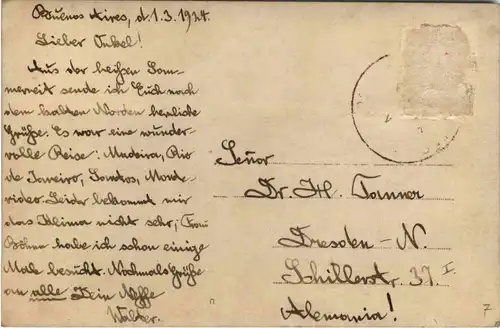 Buenos Aires, d. 1.3.1924.
Lieber Onkel!
Aus der heißen Som-
merzeit sende ich Euch nach
dem kalten Norden herzliche
Grüße. Es war eine wunder-
volle Reise: Madeira, Rio
de Janeiro, Santos, Monte-
video. Leider bekommt mir
das Klima nicht sehr; Frau
habe ich schon einige
Male besucht. Nochmals Grüße
an alle Dein Neffe
Walter.
Señor
Dr. H.
Dresden-N.
Schillerstr. 37. I.
Alemania!
7